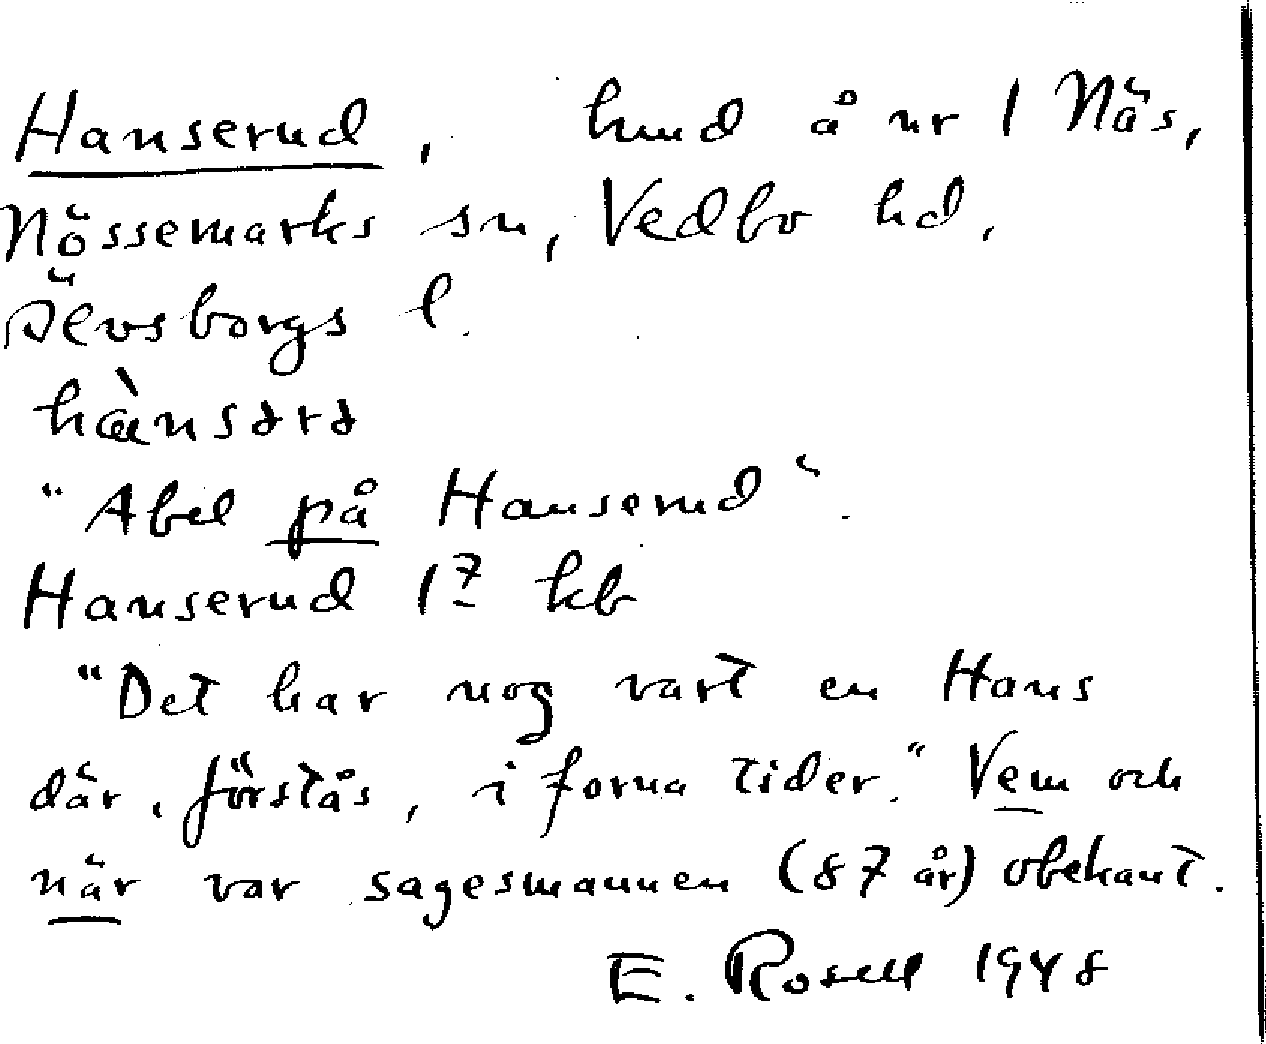 Hanserud, hmd å nr 1 Näs,
Nössemarks sn, Vedbo hd,
Älvsborgs l.
"Abel på Hanserud".
Hanserud 17 kb
"Det har nog vart en Hans
där, förstås, i forna tider." Vem och
när var sagesmannen (87 år) obekant.
E. Rosell 1948